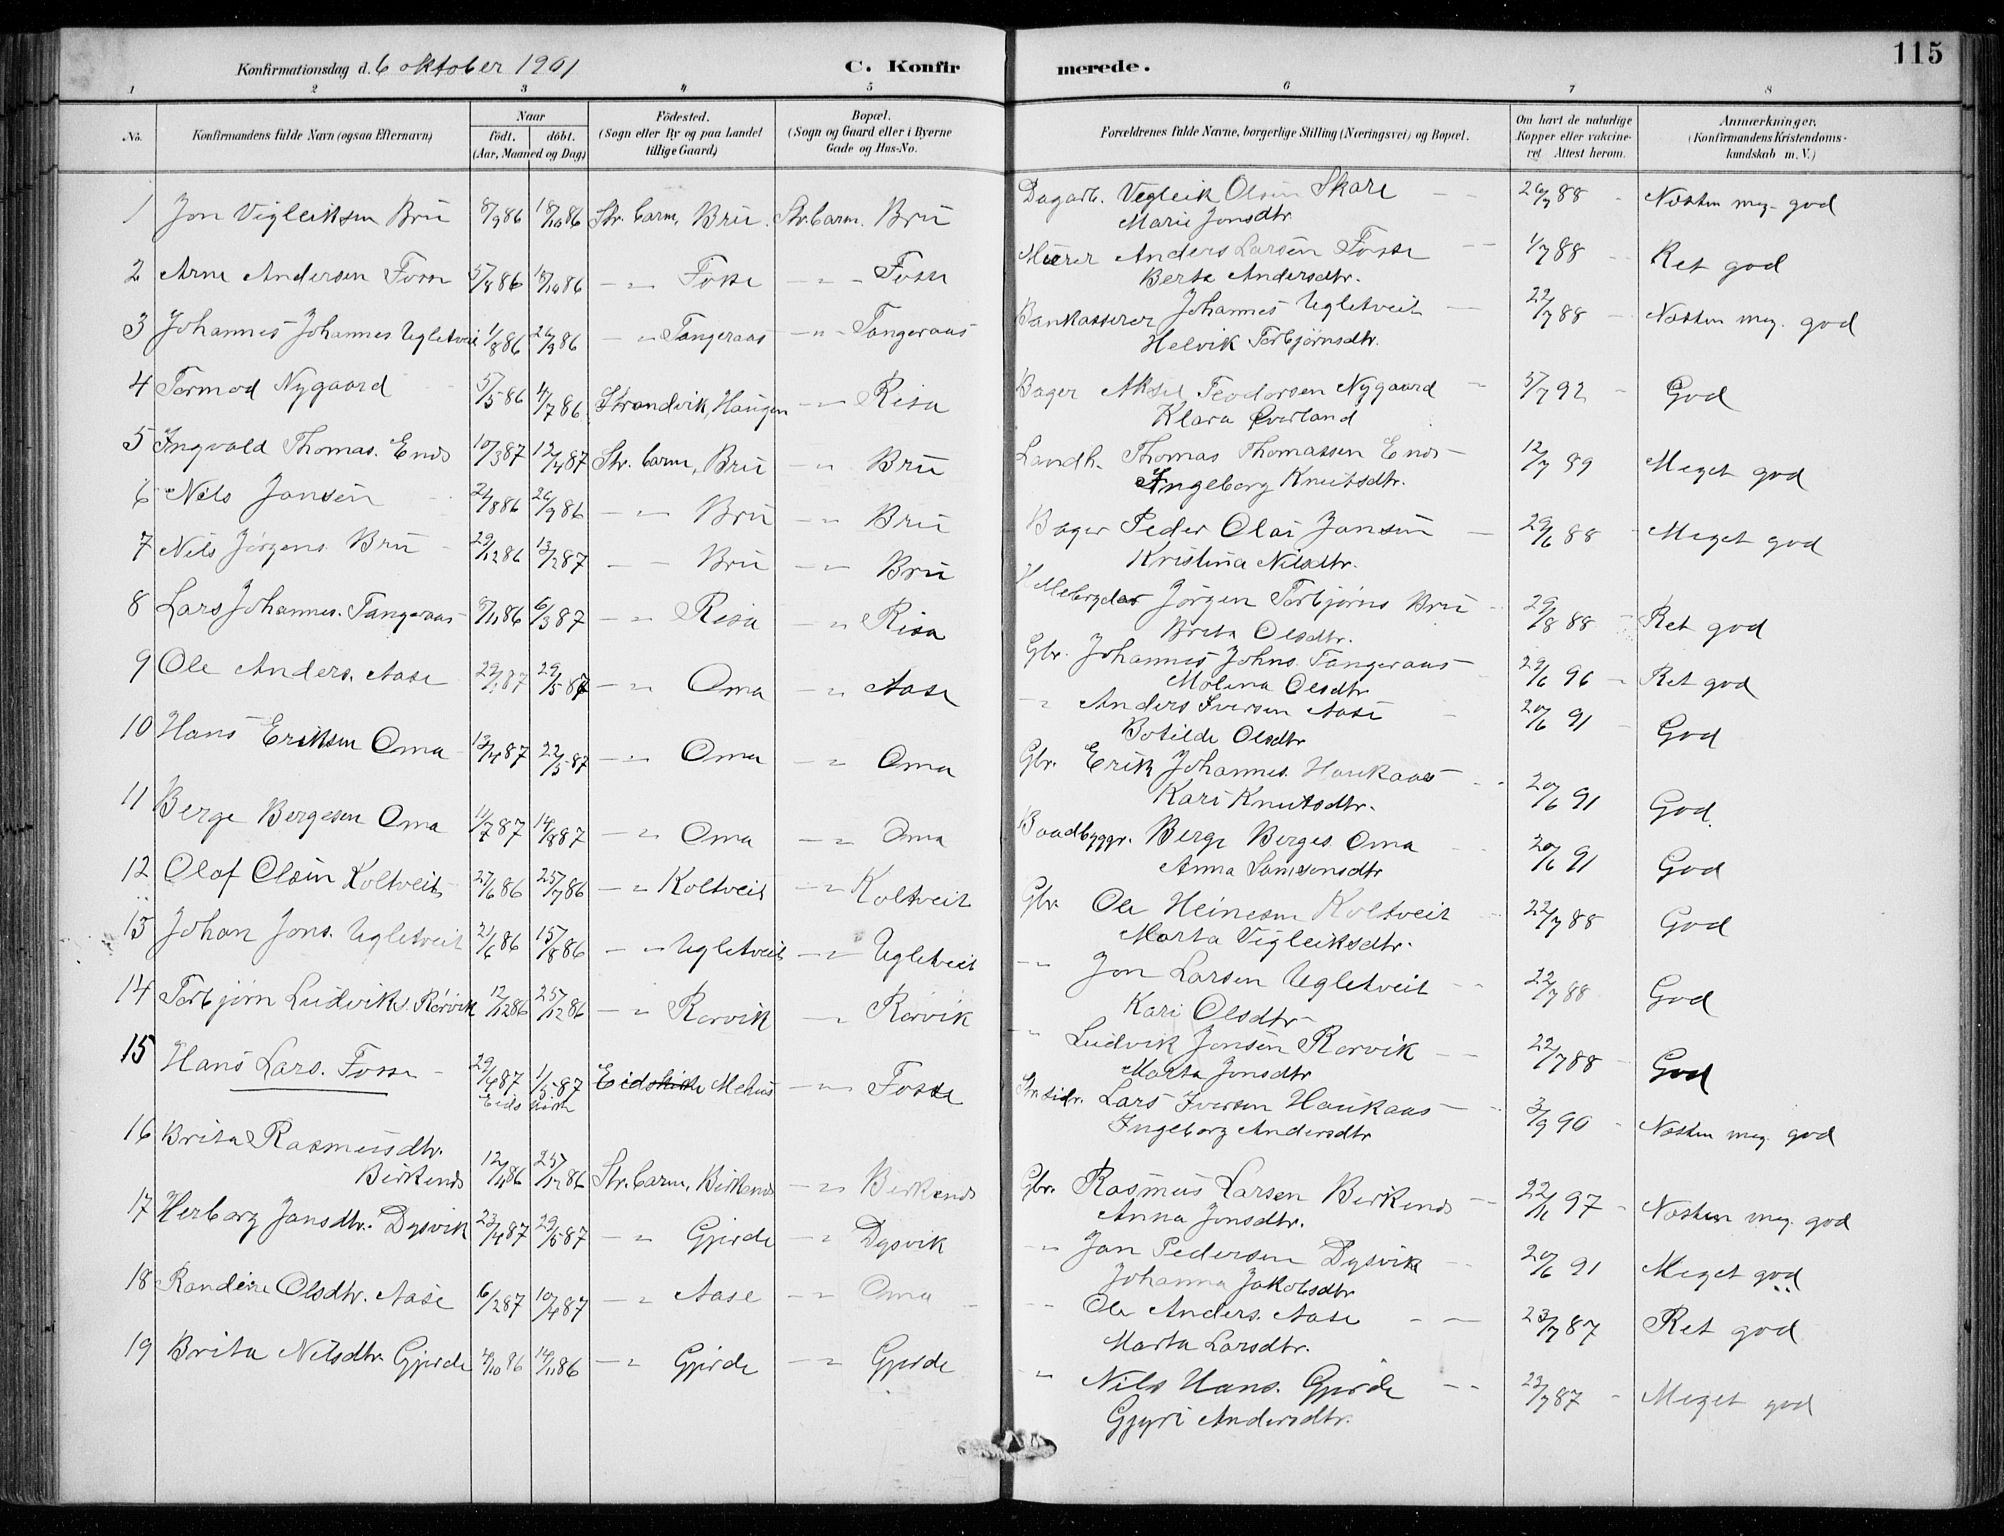 115
Konfirmationsdag d. 6 oktober 1901 C. Konfirmerede.
1 2 3 4 5 6 7 8
No. Konfirmandens fulde Navn (ogsaa Efternavn) Naar födt. döbt. (Aar, Maaned og Dag) Födested. (Sogn eller By og paa Landet tillige Gaard) Bopæl. (Sogn og Gaard eller i Byerne Gade og Hus-No. Forældrenes fulde Navne, borgerlige Stilling (Næringsvei) og Bopæl. Om havt de naturlige Kopper eller vaccineret Attest herom. Anmærkninger, (Konfirmandens Kristendomskundskab m. V.)
1 Jon Vigleiksen Brü 8/9 86 18/10 86 Str. barm, Brü. Str. barm. Brü Dagarb. Vegleik Olsen Skare 26/7 88 Næsten meg. god
Marie Jonsdtr
2 Arne Andersen Fosse 5/8 86 18/10 86 – " – Fosse – " – Fosse Mürer Anders Larsen Fosse 1/7 88 Ret god
Berta Andersdtr.
3 Johannes Johannes Ugletveit 1/8 86 26/9 86 – " – Tangeraas – " – Tangeraas Bankasserer Johannes Ugletveit 22/7 88 Næsten meg. god
Helvik Torbjørnsdtr.
4 Tormod Nygaard 5/5 86 4/7 86 Strandvik, Haugen – " – Risa Bager Aksel Teodorsen Nygaard 5/7 92 God
Klara Øverland
5 Ingvald Thomas. Ends 10/3 87 12/4 87 Str. barm, Brü – " – Brü Landh. Thomas Thomassen Ends 12/7 89 Meget god
Ingeborg Knutsdtr.
6 Nils Jansen 24/8 86 26/9 86 – " – Brü – " – Brü Bager Peder Olai Jansen 29/6 88 Meget god
Kristina Nilsdtr.
7 Nils Jørgens. Brü 29/12 86 13/2 87 – – Brü – " – Brü Hellebryder Jørgen Torbjørns Brü 29/8 88 Ret god
Brita Olsdtr.
8 Lars Johannes. Tangeraas 8/11 86 6/3 87 – " – Risa – " – Risa Gbr. Johannes Johns. Tangeraas 29/6 96 Ret god
Molina Olsdtr
9 Ole Anders. Aase 29/1 87 29/5 87 – " – Oma – " – Aase " Anders Iversen Aase 20/6 91 God
Botilde Olsdtr
10 Hans Eriksen Oma 13/4 87 22/5 87 – " – Oma – " – Oma Gbr. Erik Johannes. Haukaas 20/6 91 God
Kari Knutsdtr.
11 Berge Bergesen Oma 11/7 87 14/8 87 – " – Oma – " – Oma Baadbyggr. Berge Berges. Oma 20/6 91 God
Anna Samsonsdtr
12 Olaf Olsen Koltveit 27/6 86 25/7 86 – " – Koltveit – " – Koltveit Gbr. Ole Heinesen Koltveit 22/7 88 God
Marta Vigleiksdtr.
13 Johan Jons. Ugletveit 21/6 86 15/8 86 – " – Ugletveit – " – Ugletveit – " – Jon Larsen Ugletveit 22/7 88 God
Kari Olsdtr
14 Torbjørn Ludviks. Rørvik 12/12 86 25/12 86 – " – Rørvik – " – Rørvik " Ludvik Jonsen Rørvik 22/7 88 God
Marta Jonsdtr
15 Hans Lars. Fosse 29/4 87 1/5 87 Eidskirke Mehus – " – Fosse Lars Iversen Haukaas 3/9 90 Næsten meg. god
Eids kirke Ingeborg Andersdtr
16 Brita Rasmusdtr.
Birkenes 12/11 86 25/12 86 Str. barm, Birkenes – " – Birkenes Gbr. Rasmus Larsen Birkenes 22/11 97 Næsten meg. god
Anna Jonsdtr.
17 Herborg Jansdtr. Dysvik 23/4 87 29/5 87 – " – Gjerde – " – Dysvik – " – Jan Pedersen Dysvik 20/6 91 Meget god
Johanna Jakobsdtr
18 Randine Olsdtr. Aase 6/2 87 10/4 87 – " – Aase – " – Oma – " – Ole Anders. Aase 23/7 87 Ret god
Marta Larsdtr.
19 Brita Nilsdtr. Gjerde 4/10 86 14/11 86 – " – Gjerde – " – Gjerde " Nils Hans. Gjerde 23/7 87 Meget god
Gjyri Andersdtr.